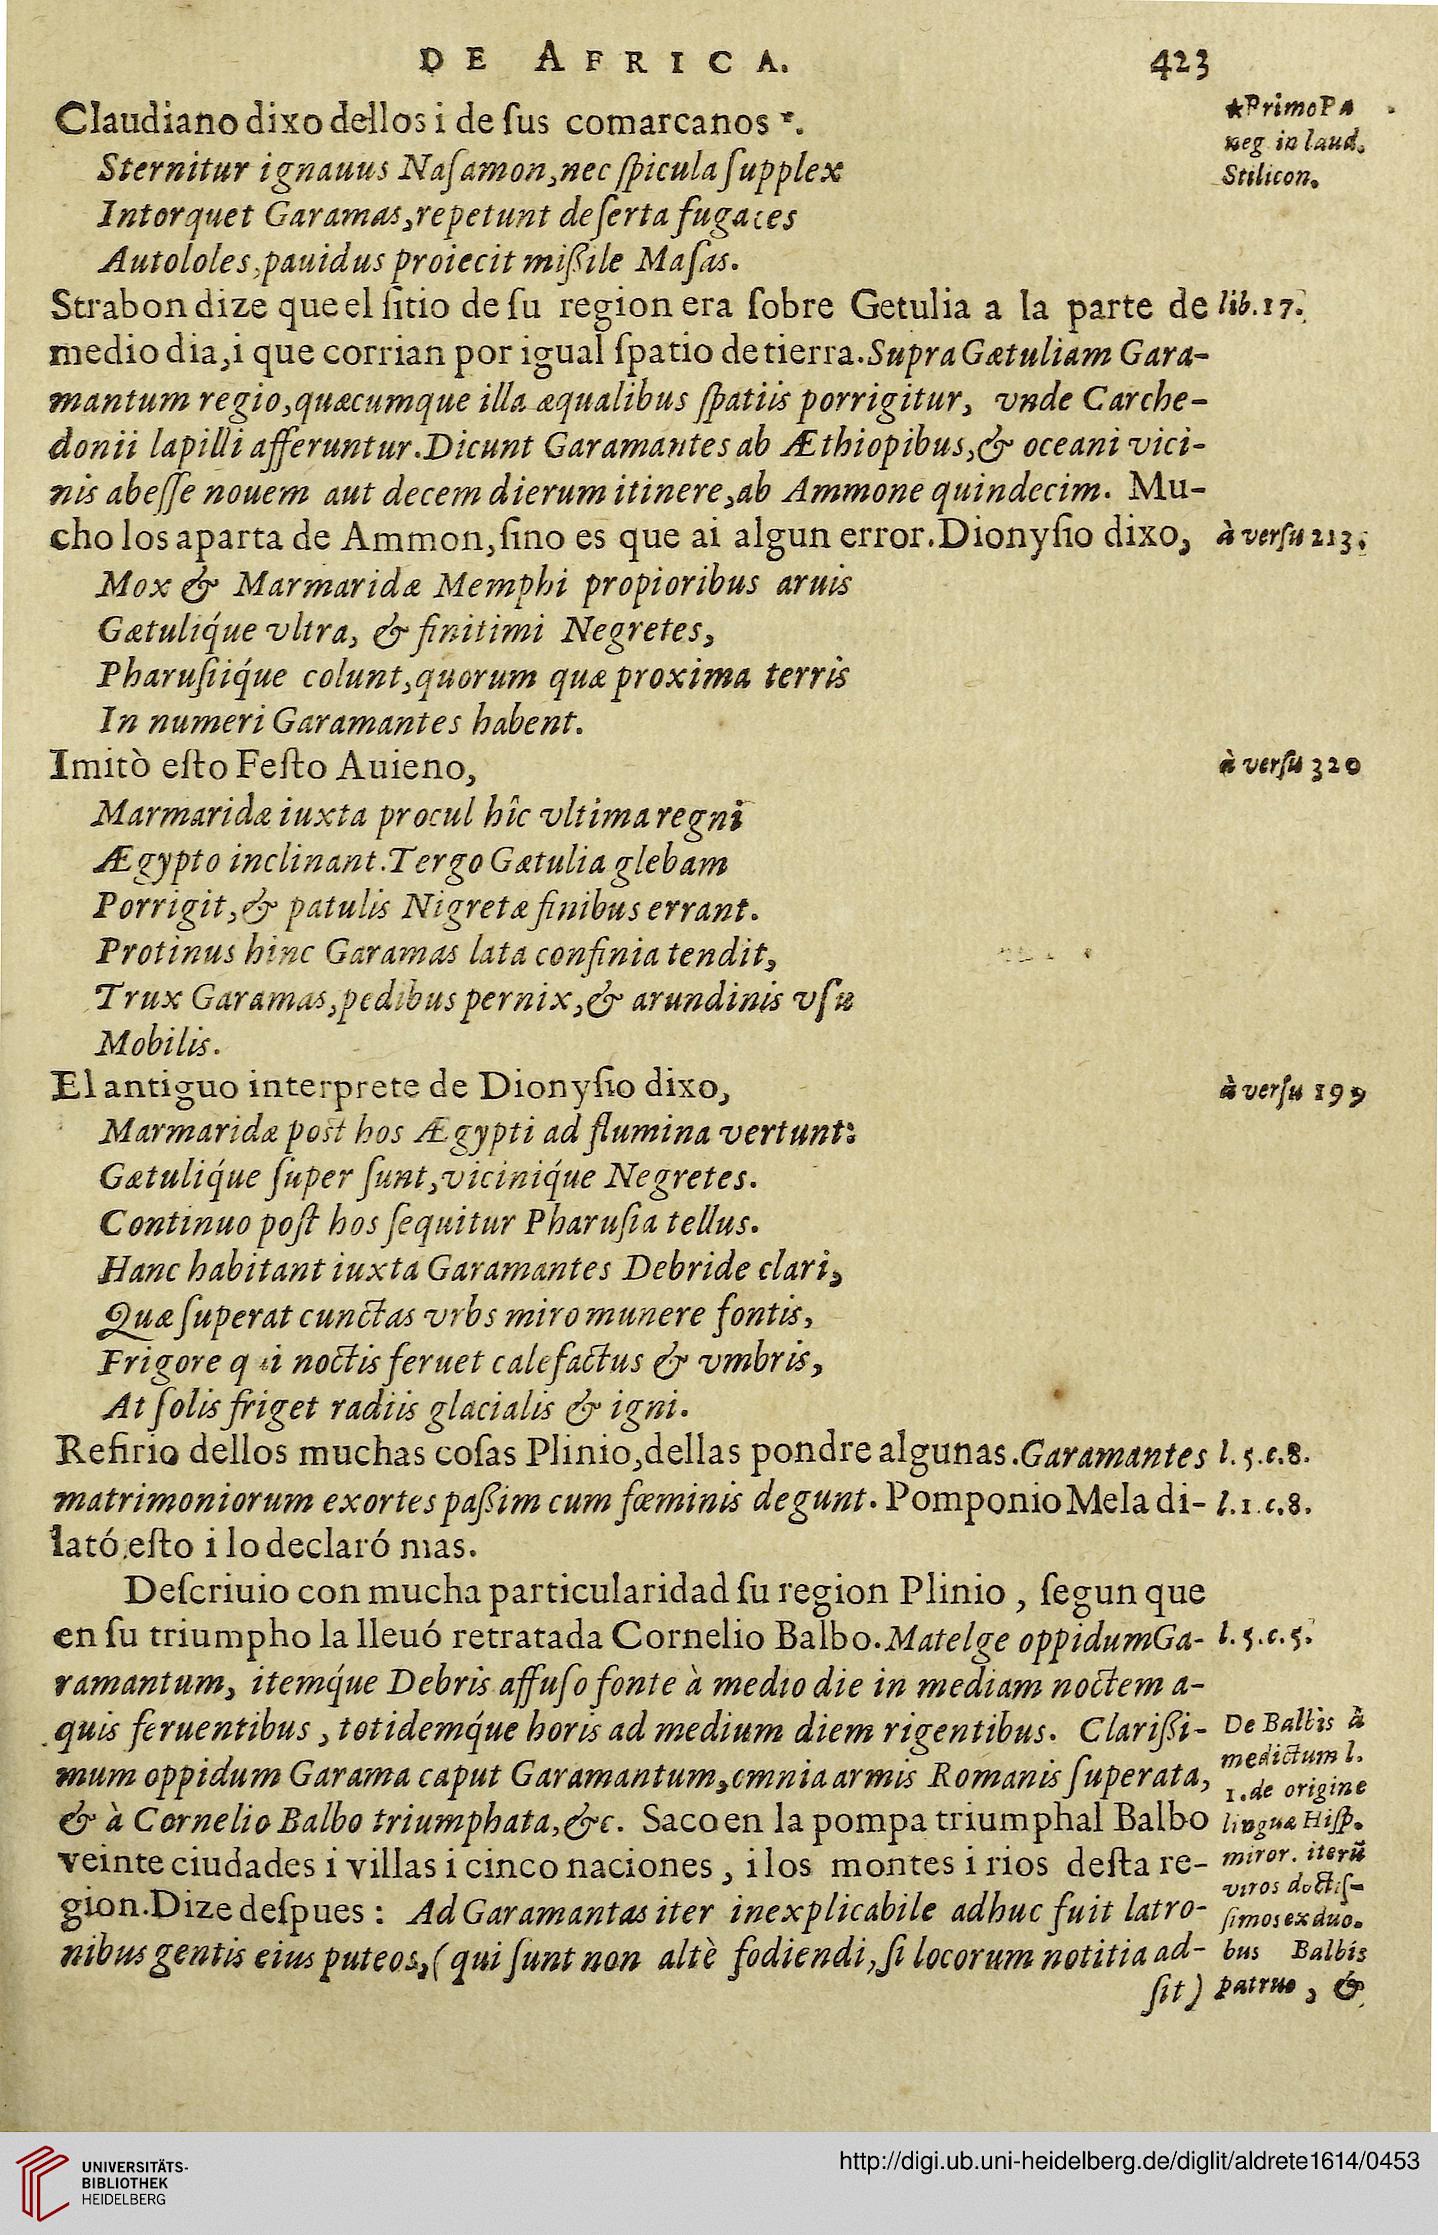 DE AFRICA. 423
Claudiano dixo dellos i de ſus comarcanos *.
Sternitur ignauus Naſamon, nec ſpicula ſupplex
Intorquet Garamas, repetunt deſerta fugaces
Autololes, pauidus proiecit miſsile Maſas.
Strabon dize que el ſitio de ſu region era ſobre Getulia a la parte de
medio dia, i que corrian por igual ſpatio de tierra. Supra Gætuliam Gara-
mantum regio, quæcumque illa æqualibus ſpatiis porrigitur, vnde Carche-
donii lapilli afferuntur. Dicunt Garamantes ab Æthiopibus, & oceani vici-
nis abeſſe nouem aut decem dierum itinere, ab Ammone quindecim. Mu-
cho los aparta de Ammon, ſino es que ai algun error. Dionyſio dixo,
Mox & Marmaridæ Memphi propioribus aruis
Gætuliq́ue vltra, & finitimi Negretes,
Pharuſiiq́ue colunt, quorum quæ proxima terris
In numeri Garamantes habent.
Imitò eſto Feſto Auieno,
Marmaridæ iuxta procul hîc vltima regni
Ægypto inclinant. Tergo Gætulia glebam
Porrigit, & patulis Nigretæ finibus errant.
Protinus hinc Garamas lata confinia tendit,
Trux Garamas, pedibus pernix, & arundinis vſu
Mobilis.
El antiguo interprete de Dionyſio dixo,
Marmaridæ post hos Ægypti ad flumina vertunt:
Gætuliq́ue ſuper ſunt, viciniq́ue Negretes.
Continuo poſt hos ſequitur Pharuſia tellus.
Hanc habitant iuxta Garamantes Debride clari,
Quæ ſuperat cunctas vrbs miro munere fontis,
Frigore qui noctis feruet calefactus & vmbris,
At ſolis friget radiis glacialis & igni.
Refirio dellos muchas coſas Plinio, dellas pondre algunas. Garamantes
matrimoniorum exortes paſsim cum fœminis degunt. Pomponio Mela di-
lató eſto i lo declaró mas.
Deſcriuio con mucha particularidad ſu region Plinio, ſegun que
en ſu triumpho la lleuó retratada Cornelio Balbo. Matelge oppidum Ga-
ramantum, itemq́ue Debris affuſo fonte à medio die in mediam noctem a-
quis feruentibus, totidemq́ue horis ad medium diem rigentibus. Clariſsi-
mum oppidum Garama caput Garamantum, omnia armis Romanis ſuperata,
& à Cornelio Balbo triumphata, &c. Saco en la pompa triumphal Balbo
veinte ciudades i villas i cinco naciones, i los montes i rios deſta re-
gion. Dize deſpues: Ad Garamantas iter inexplicabile adhuc fuit latro-
nibus gentis eius puteos, (qui ſunt non altè fodiendi, ſi locorum notitia ad-
ſit)
*Primo Pa
neg in laud.
Stilicon.
lib. 17.
à verſu 213.
à verſu 320
à verſu 199
l. 5. c. 8.
l. 1. c. 8.
l. 5. c. 5.
De Balbis à
me dictum l.
1. de origine
linguæ Hiſp.
miror. iterũ
viros doctiſ-
ſimos ex duo.
bus Balbis
patruo, &
UNIVERSITÄTS-
BIBLIOTHEK
HEIDELBERG
http://digi.ub.uni-heidelberg.de/diglit/aldrete1614/0453